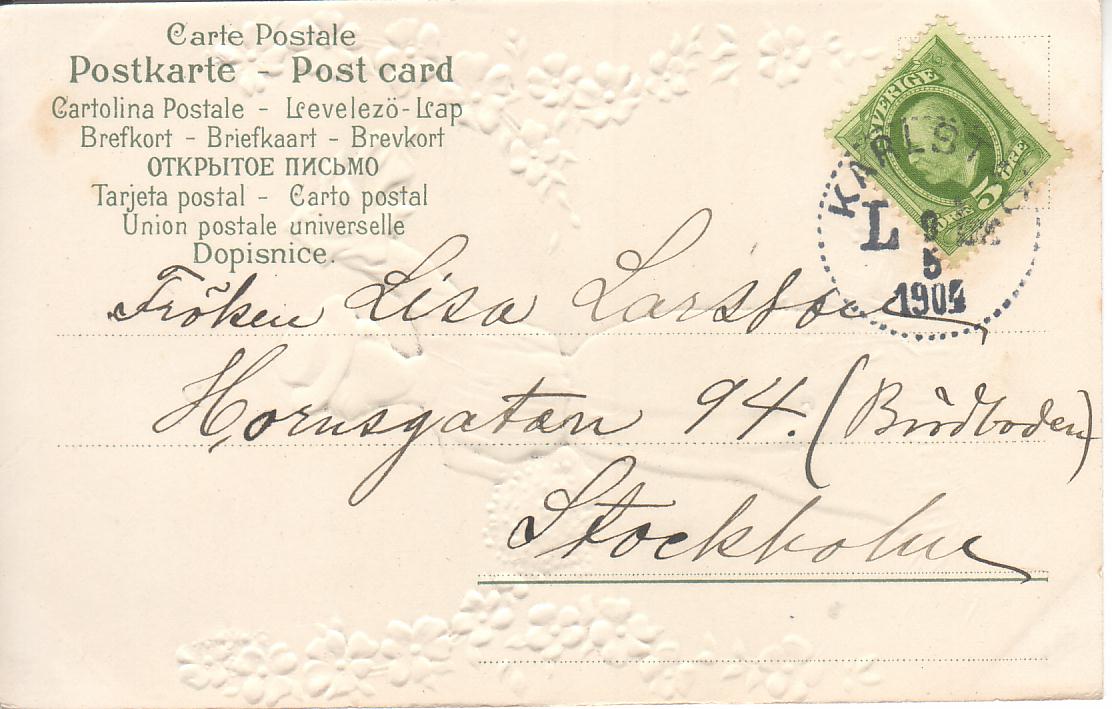 Carte Postale
Postkarte - Post card
Cartolina Postale - Levelezö-Lap
Brefkort - Briefkaart - Brevkort
ОТКРЫТОЕ ПИСЬМО
Tarjeta postal - Carto postal
Union postale universelle
Dopisnice.
SVERIGE
5 ÖRE
KARLST
L
5
1904
Fröken Lisa Larsson
Hornsgatan 94. (Brödboden)
Stockholm